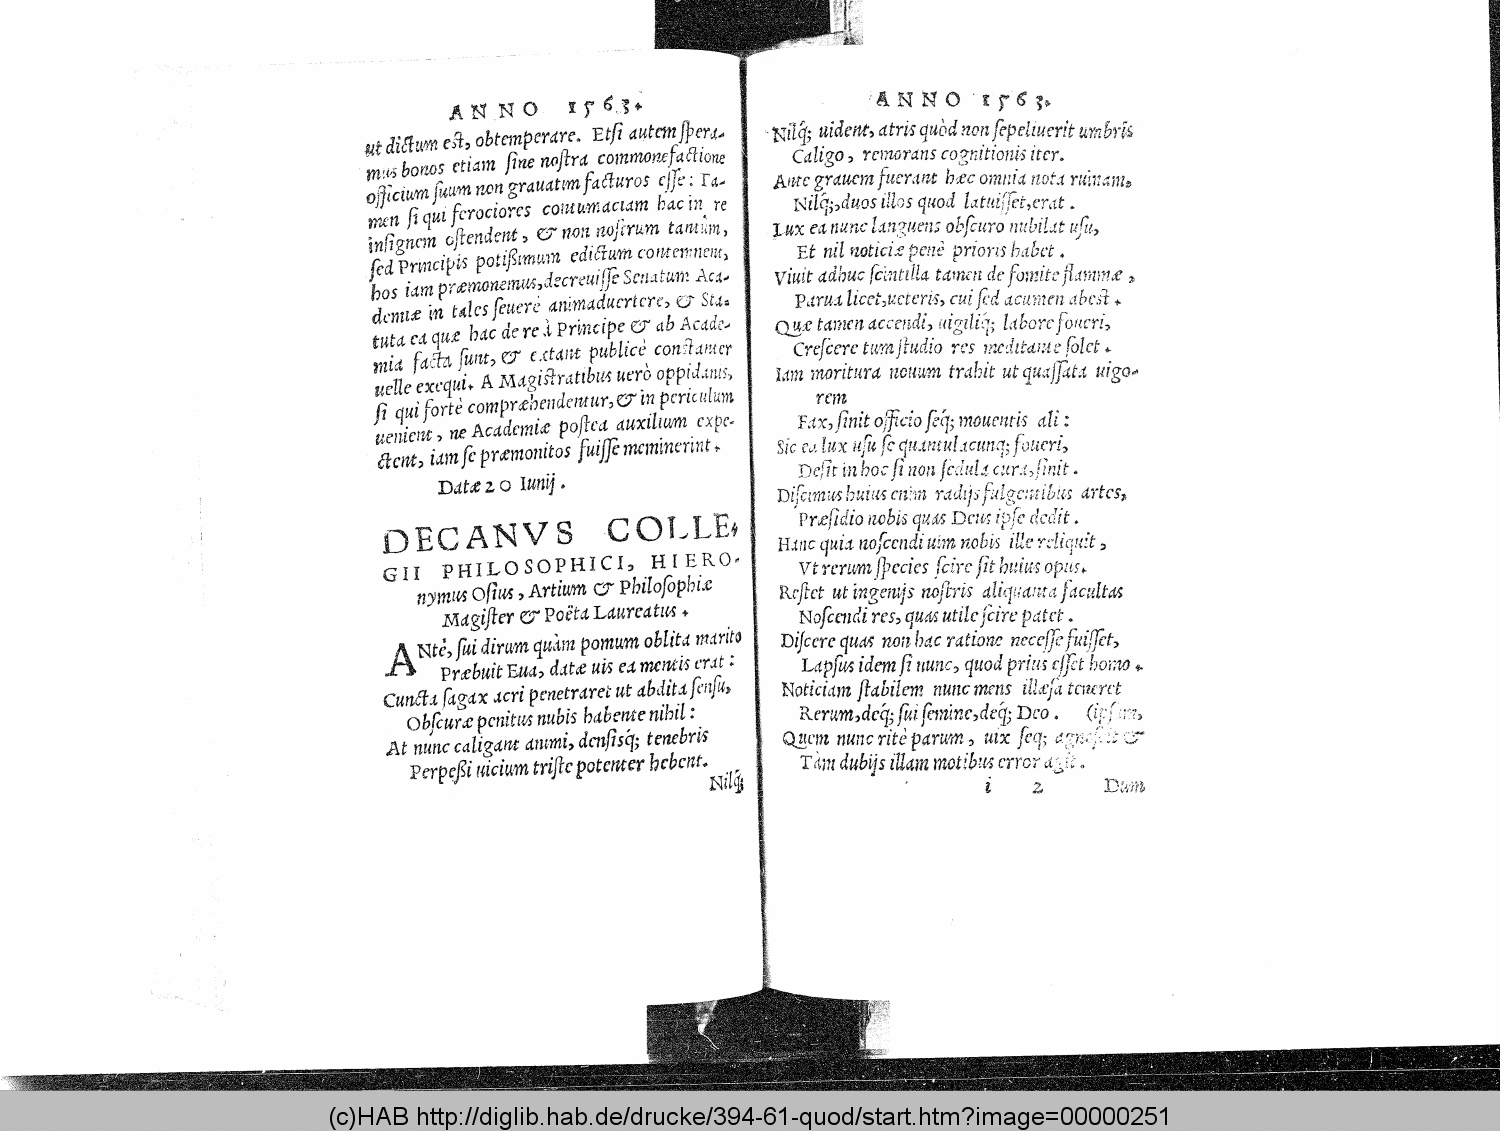 ANNO 1563.
ut dictum est, obtemperare. Etsi autem spera-
mus bonos etiam sine nostra commonefactione
officium suum non grauatim facturos esse: Ta-
men si qui ferociores contumaciam hac in re
insignem ostendent, & non nostrum tantùm,
sed Principis potißimum edictum contemnent,
hos iam præmonemus, decreuisse Senatum Aca-
demiæ in tales seuerè animaduertere, & Sta-
tuta ea quæ hac de re à Principe & ab Acade-
mia facta sunt, & extant publicè constanter
uelle exequi. A Magistratibus uerò oppidanis,
si qui fortè compræhendentur, & in periculum
uenient, ne Academiæ postea auxilium expe-
ctent, iam se præmonitos fuisse meminerint.
Datæ 20 Iunij.
DECANVS COLLE-
GII PHILOSOPHICI, HIERO-
nymus Osius, Artium & Philosophiæ
Magister & Poëta Laureatus.
ANtè, sui dirum quàm pomum oblita marito
Præbuit Eua, datæ uis ea mentis erat:
Cuncta sagax acri penetraret ut abdita sensu,
Obscuræ penitus nubis habente nihil:
At nunc caligant animi, densisq́; tenebris
Perpeßi uicium triste potenter hebent.
Nilq́;
ANNO 1563.
Nilq́; uident, atris quòd non sepeliuerit umbris
Caligo, remorans cognitionis iter.
Ante grauem fuerant hæc omnia nota ruinam,
Nilq́;, duos illos quod latuisset, erat.
Lux ea nunc languens obscuro nubilat usu,
Et nil noticiæ penè prioris habet.
Viuit adhuc scintilla tamen de fomite flammæ,
Parua licet, ueteris, cui sed acumen abest.
Quæ tamen accendi, uigiliq́; labore foueri,
Crescere tum studio res meditante solet.
Iam moritura nouum trahit ut quassata uigo-
rem
Fax, sinit officio seq́; mouentis ali:
Sic ea lux usu se quantulacunq; foueri,
Desit in hoc si non sedula cura, sinit.
Discimus huius enim radijs fulgentibus artes,
Præsidio nobis quas Deus ipse dedit.
Hanc quia noscendi uim nobis ille reliquit,
Vt rerum species scire sit huius opus.
Restet ut ingenijs nostris aliquanta facultas
Noscendi res, quas utile scire patet.
Discere quas non hac ratione necesse fuisset,
Lapsus idem si nunc, quod prius esset homo.
Noticiam stabilem nunc mens illæsa teneret
Rerum, deq́; sui semine, deq́; Deo. (ipsum,
Quem nunc ritè parum, uix seq; agnoscit &
Tàm dubijs illam motibus error agit.
i 2 Dum
(c)HAB http://diglib.hab.de/drucke/394-61-quod/start.htm?image=00000251